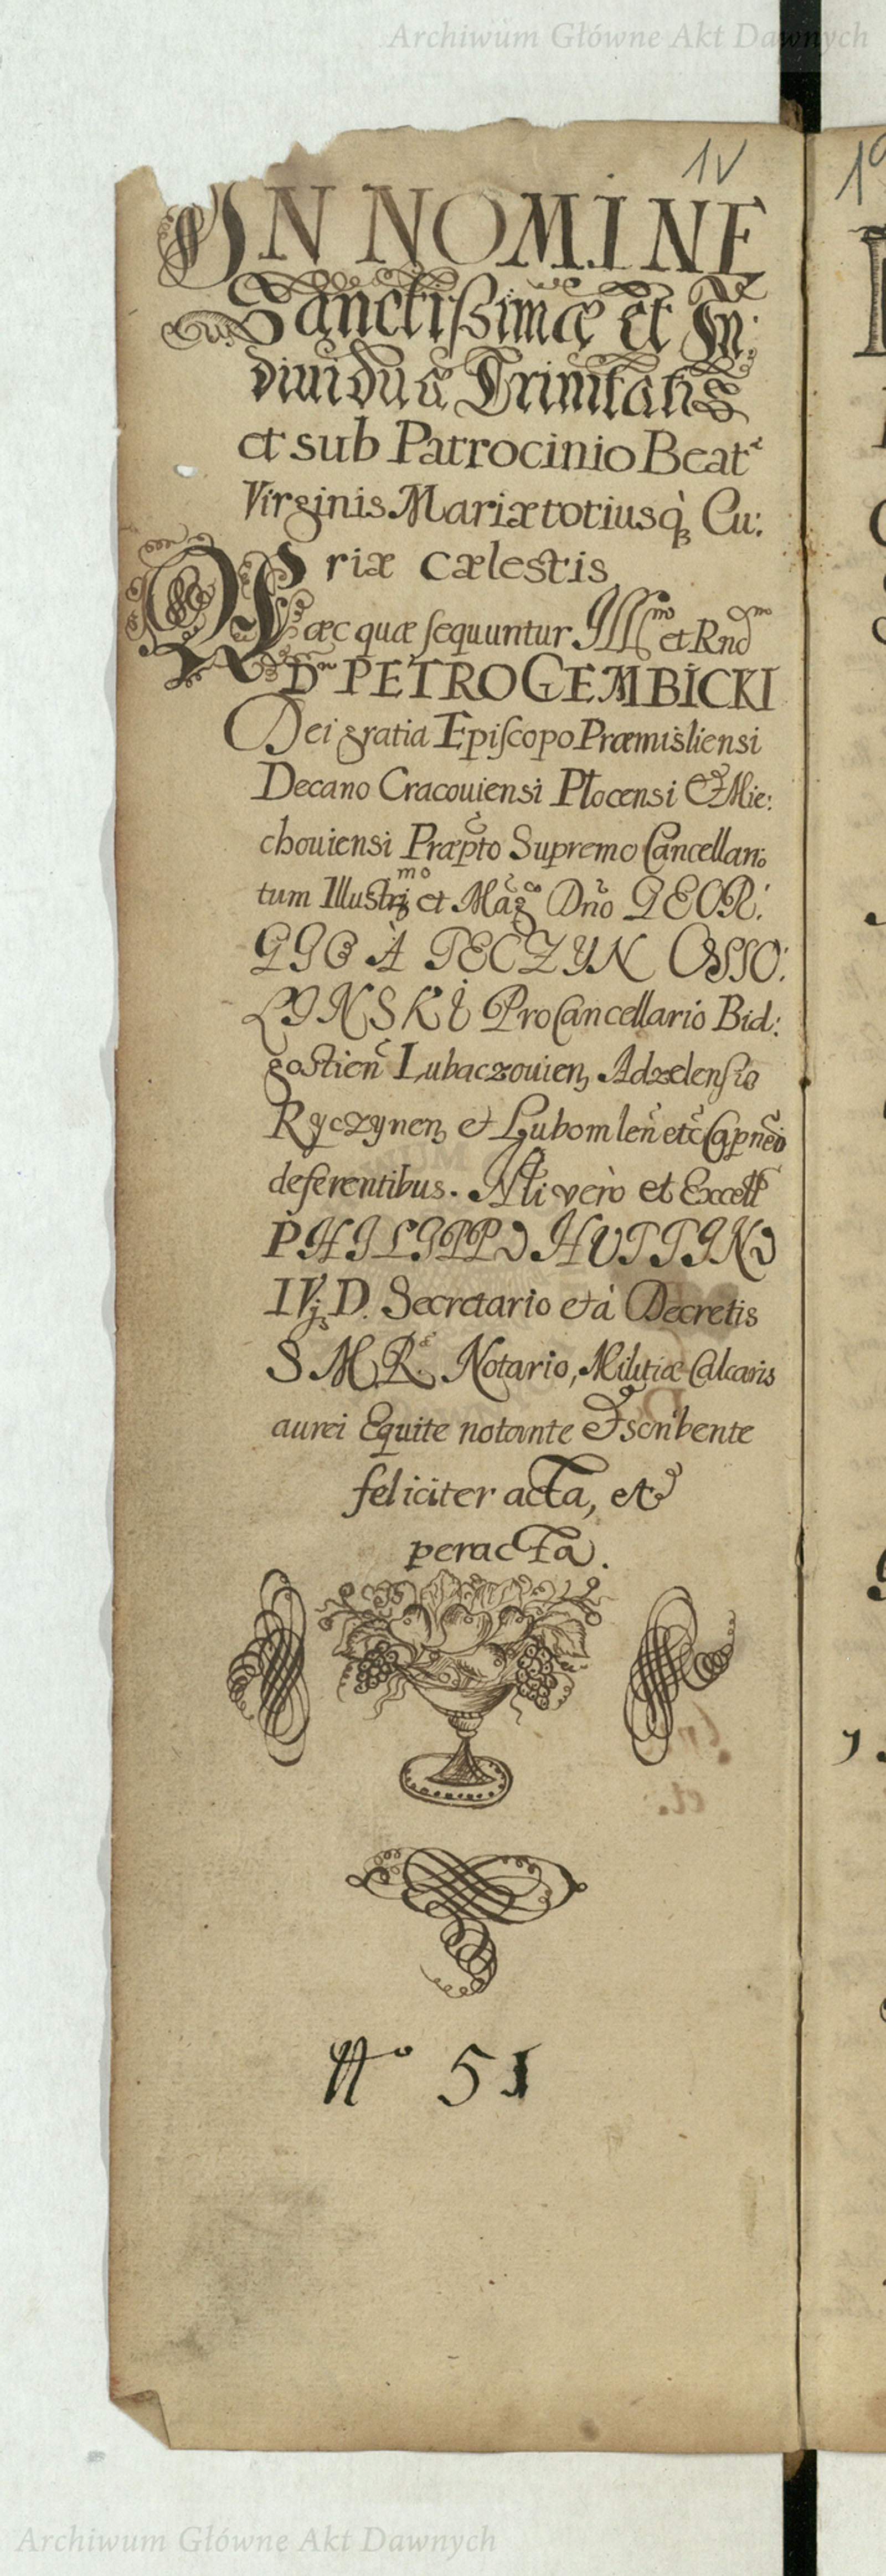 Archiwum Główne Akt Dawnych
1v
IN NOMINE
Sanctißimæ Et In:
diuiduæ Trinitatis
et sub Patrocinio Beatæ
Virginis Mariæ totiusq; Cu:
riæ cælestis
Hæc quæ sequuntur Illmo et Rndmo
Dno PETRO GEMBICKI
Dei gratia Episcopo Præmisliensi
Decano Cracouiensi Plocensi Et Mie:
chouiensi Præpto Supremo Cancellario
tum Illustrimo et Mag Dno GEOR:
GIO À TECZYN OSSO:
LINSKI ProCancellario Bid:
gostien Lubaczouien Adzelensiq
Ryczynen et Lubomlen etc Capneo
deferentibus. Mihi verò et Excell
PHILIPPO HUTTINO
IVj D. Secretario et à Decretis
S M R. Notario, Militiæ Calcaris
aurei Equite notante Et scribente
feliciter acta, et
peracta.
No 51
Archiwum Główne Akt Dawnych